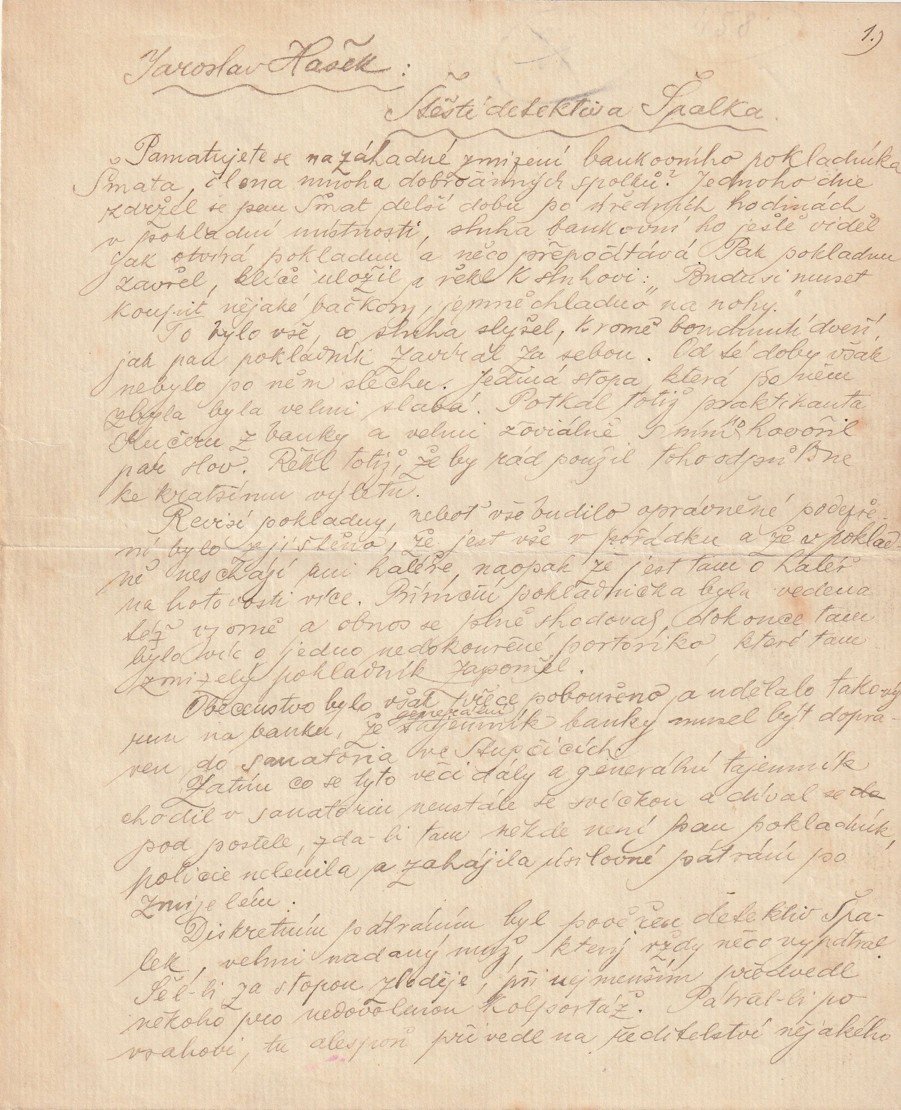 1.)
Jaroslav Hašek:
Štěstí detektiva Špalka.
Pamatujete se na záhadné zmizení bankovního pokladníka
Šmata, člena mnoha dobročinných spolků? Jednoho dne
zdržel se pan Šmat delší dobu po úředních hodinách
v pokladní místnosti, sluha bankovní ho ještě viděl
jak otvírá pokladnu a něco přepočítává. Pak pokladnu
zavřel, klíče uložil a řekl k sluhovi: „Budu si muset
koupit nějaké bačkory, je mně chladno na nohy."
To bylo vše, co sluha slyšel, kromě bouchnutí dveří,
jak pan pokladník zavřel za sebou. Od té doby však
nebylo po něm slechu. Jediná stopa, která po něm
zbyla byla velmi slabá. Potkal totiž praktikanta
Kučeru z banky a velmi žoviálně s ním hovořil
pár slov. Řekl totiž, že by rád použil toho odpůldne
ke kratšímu výletu.
Revisí pokladny, neboť vše budilo oprávněné podezře-
ní bylo zjištěno, že jest vše v pořádku a že v poklad-
ně neschází ani haléře naopak že jest tam o haléř
na hotovosti více. Příruční pokladnička byla vedena
též vzorně a obnos se plně shodoval, dokonce tam
bylo víc o jedno nedokouřené portoriko, které tam
zmizelý pokladník zapomněl.
Obecenstvo bylo však přece pobouřeno a udělalo takový
run na banku, že generální tajemník banky musel být dopra-
ven do sanatoria ve Stupčicích.
Zatím co se tyto věci dály a generální tajemník
chodil v sanatoriu neustále se svíčkou a díval se do
pod postele, zda-li tam někde není pan pokladník,
policie nelenila a zahájila úsilovné pátrání po
zmizelém.
Diskretním pátráním byl pověřen detektiv Špa-
lek, velmi nadaný muž, který vždy něco vypátral.
Šel-li za stopou zloděje, při nejmenším předvedl
někoho pro nedovolenou kolportáž. Pátral-li po
vrahovi, tu alespoň přivedl na ředitelství nějakého